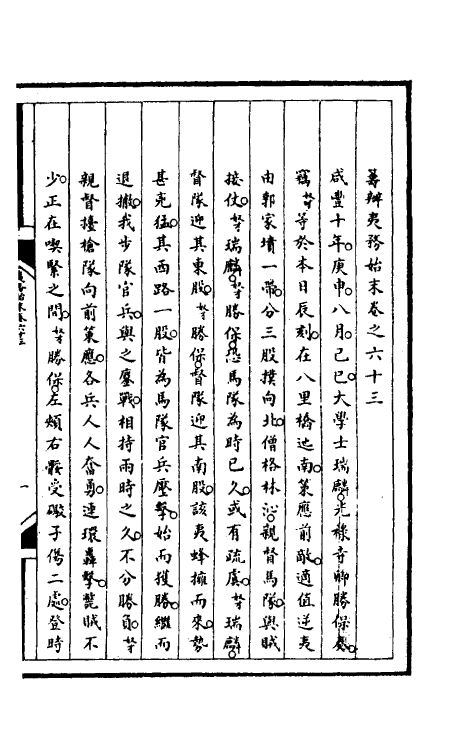 籌辦夷務始末卷之六十三
咸豐十年。庚申。八月。己巳。大學士瑞麟。光祿寺卿勝保奏。
竊等於本日辰刻。在八里橋迆南。策應前敵。適值逆夷
由郭家墳一帶。分三股撲向北。僧格林沁。親督馬隊。與賊
接仗。等瑞麟。等勝保。恐馬隊為時已久。或有疏虞。等瑞麟。
督隊迎其東股。等勝保。督隊迎其南股。該夷蜂擁而來。勢
甚兇猛。其西路一股。皆為馬隊官兵壓擊。始而獲勝。繼而
退撤。我步隊官兵。與之鏖戰。相持兩時之久。不分勝負。等
親督擡槍隊向前策應。各兵人人奮勇。連環轟擊。斃賊不
少。正在喫緊之間。等勝保。左頰右骽受礮子傷二處。登時
一